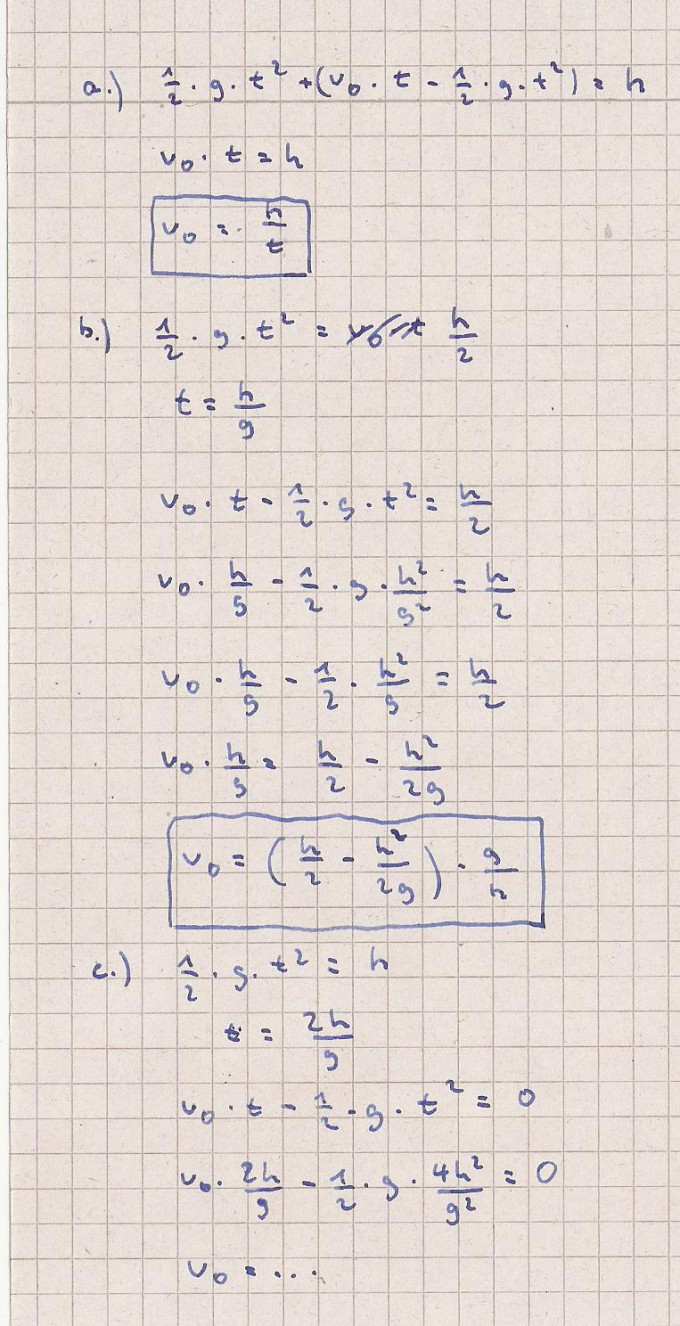 a.) 1/2 · g · t² + (v₀ · t - 1/2 · g · t²) = h
v₀ · t = h
v₀ = h/t
b.) 1/2 · g · t² = h/2
t = h/g
v₀ · t - 1/2 · g · t² = h/2
v₀ · h/g - 1/2 · g · h²/g² = h/2
v₀ · h/g - 1/2 · h²/g = h/2
v₀ · h/g = h/2 - h²/2g
v₀ = (h/2 - h²/2g) · g/h
c.) 1/2 · g · t² = h
t = 2h/g
v₀ · t - 1/2 · g · t² = 0
v₀ · 2h/g - 1/2 · g · 4h²/g² = 0
v₀ = ...